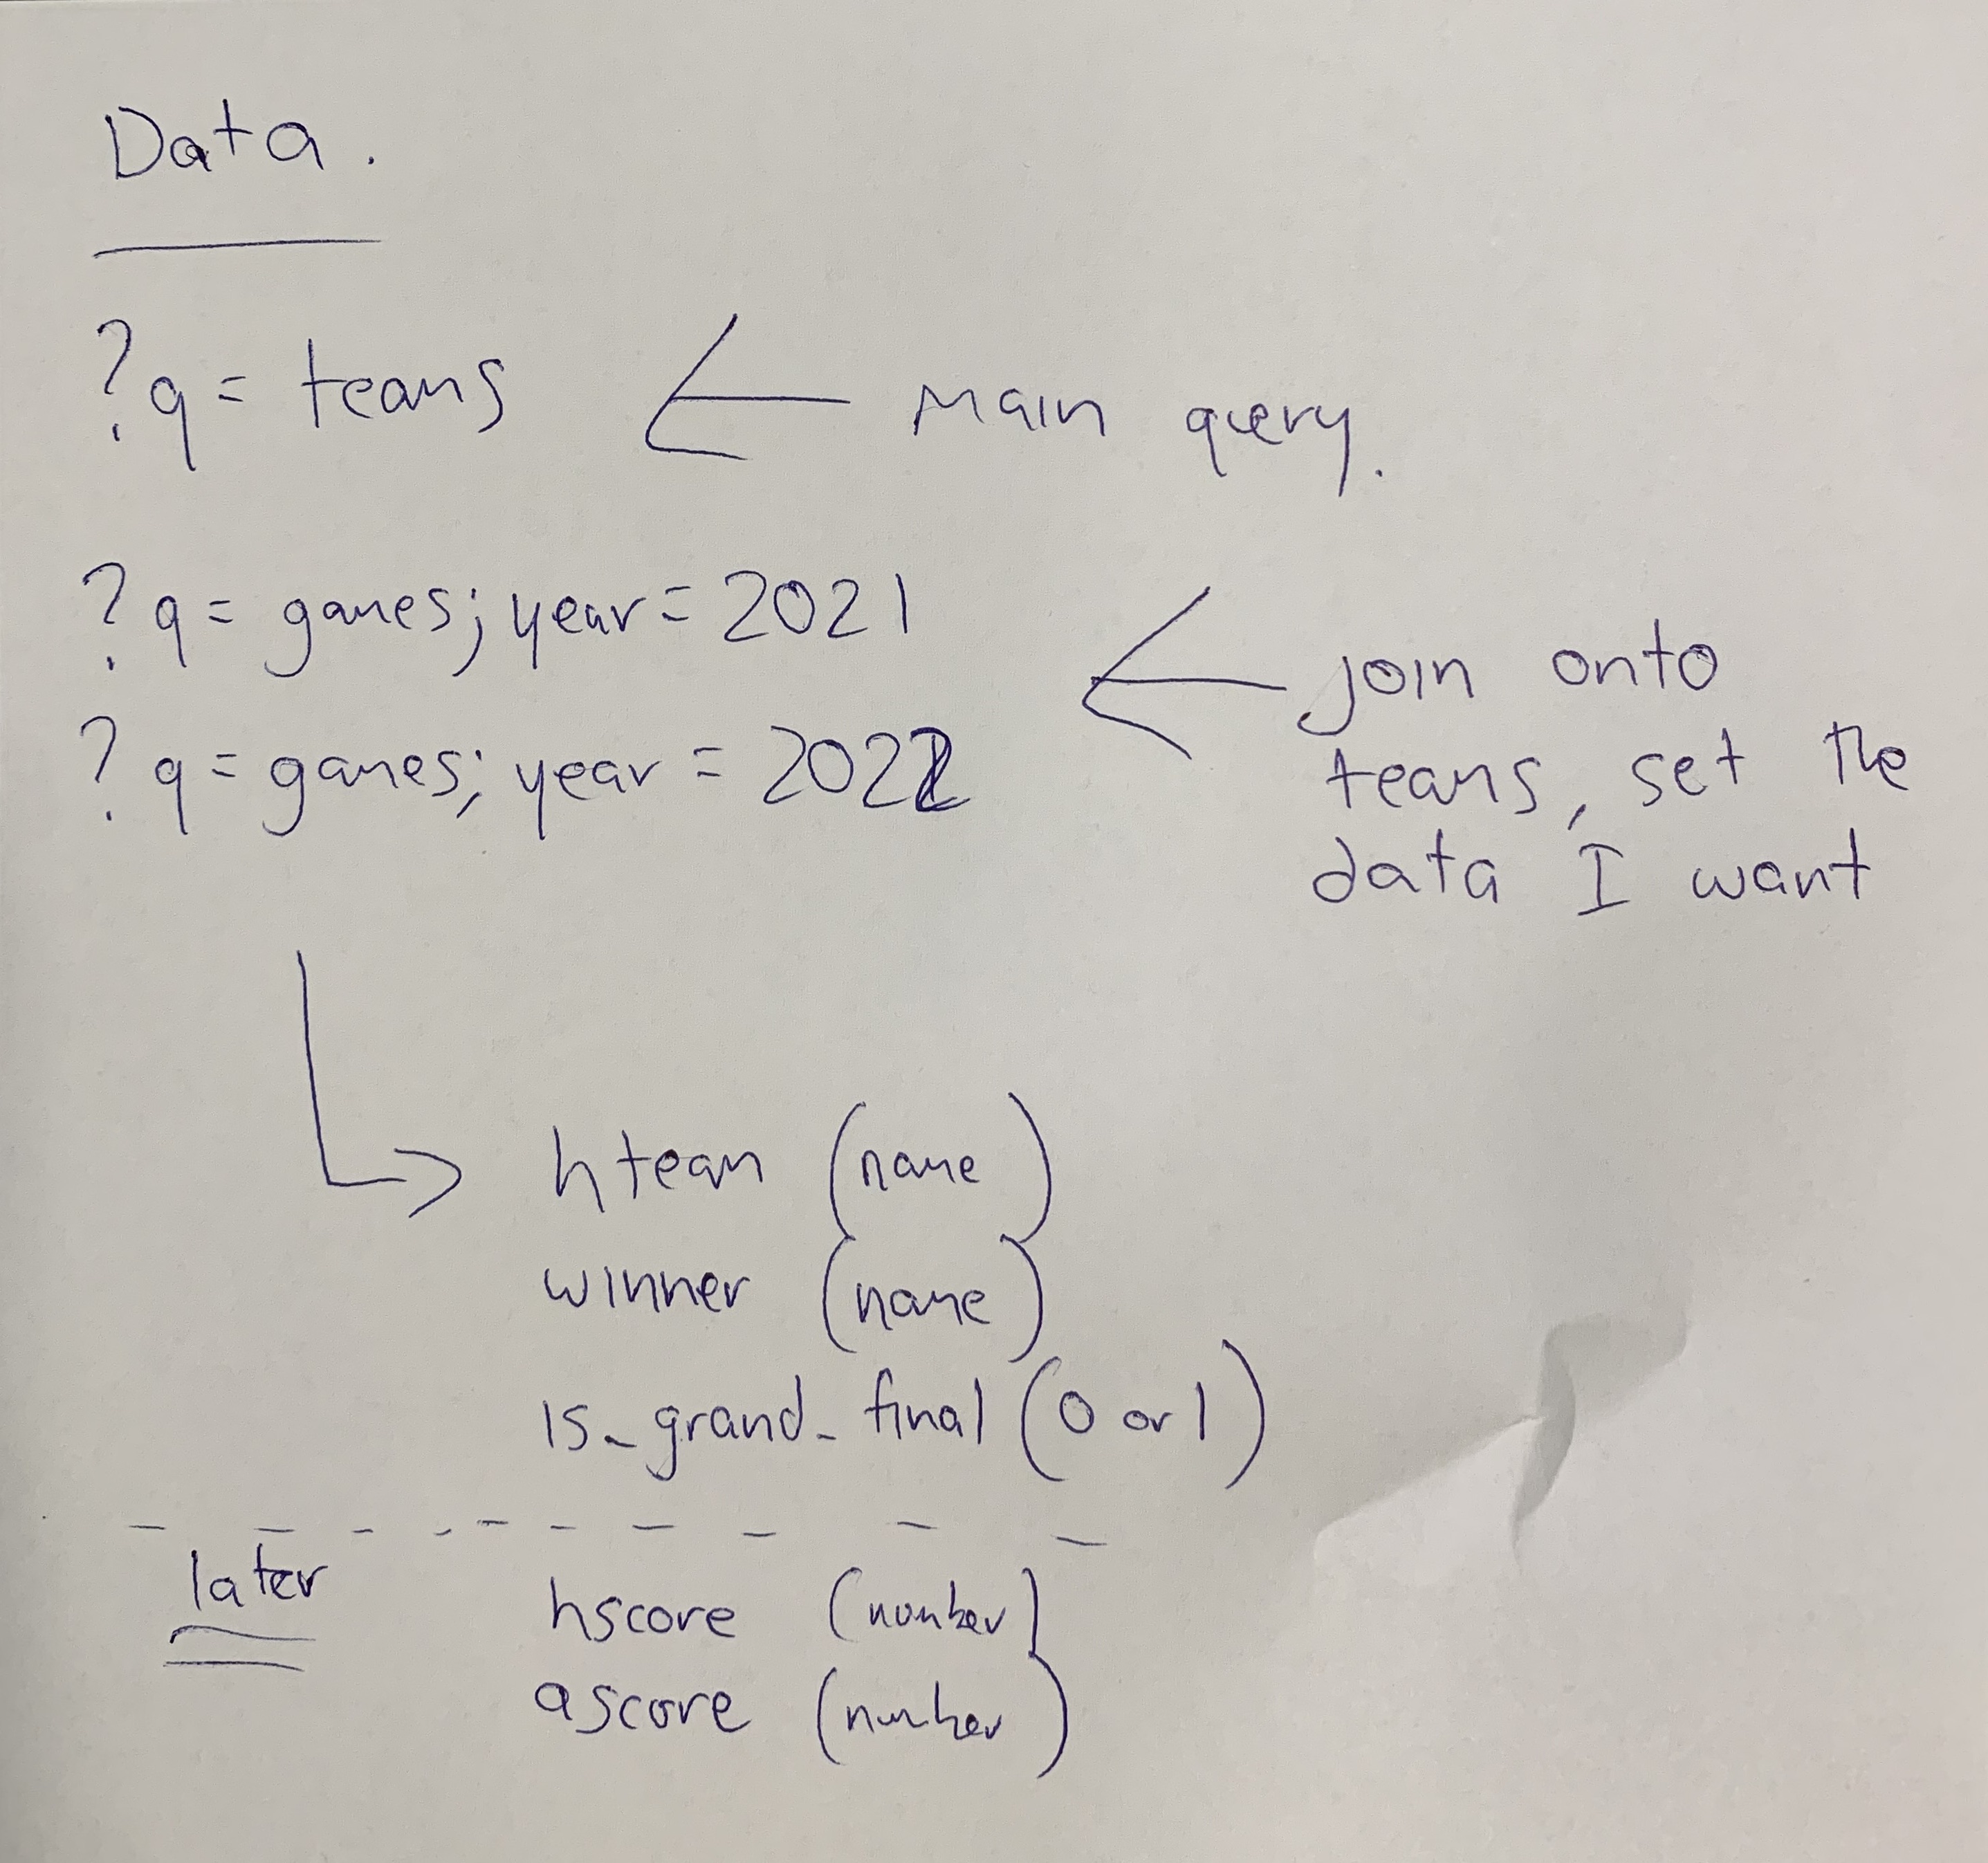 Data.
?q= teams
main query.
?q= games; year= 2021
?q= games; year= 2022
join onto
teams, set the
data I want
hteam (name)
winner (name)
is_grand_final (0 or 1)
later
hscore (number)
ascore (number)